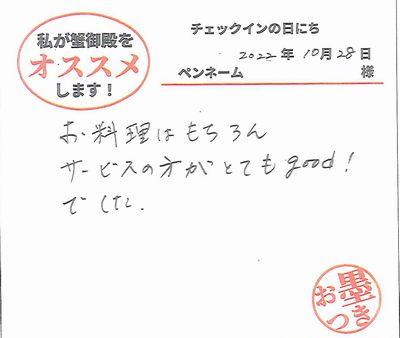 私が蟹御殿を
オススメ
します!
チェックインの日にち
2022年10月28日
ペンネーム 様
お料理はもちろん
サービスの方がとてもgood!
でした.
お墨つき